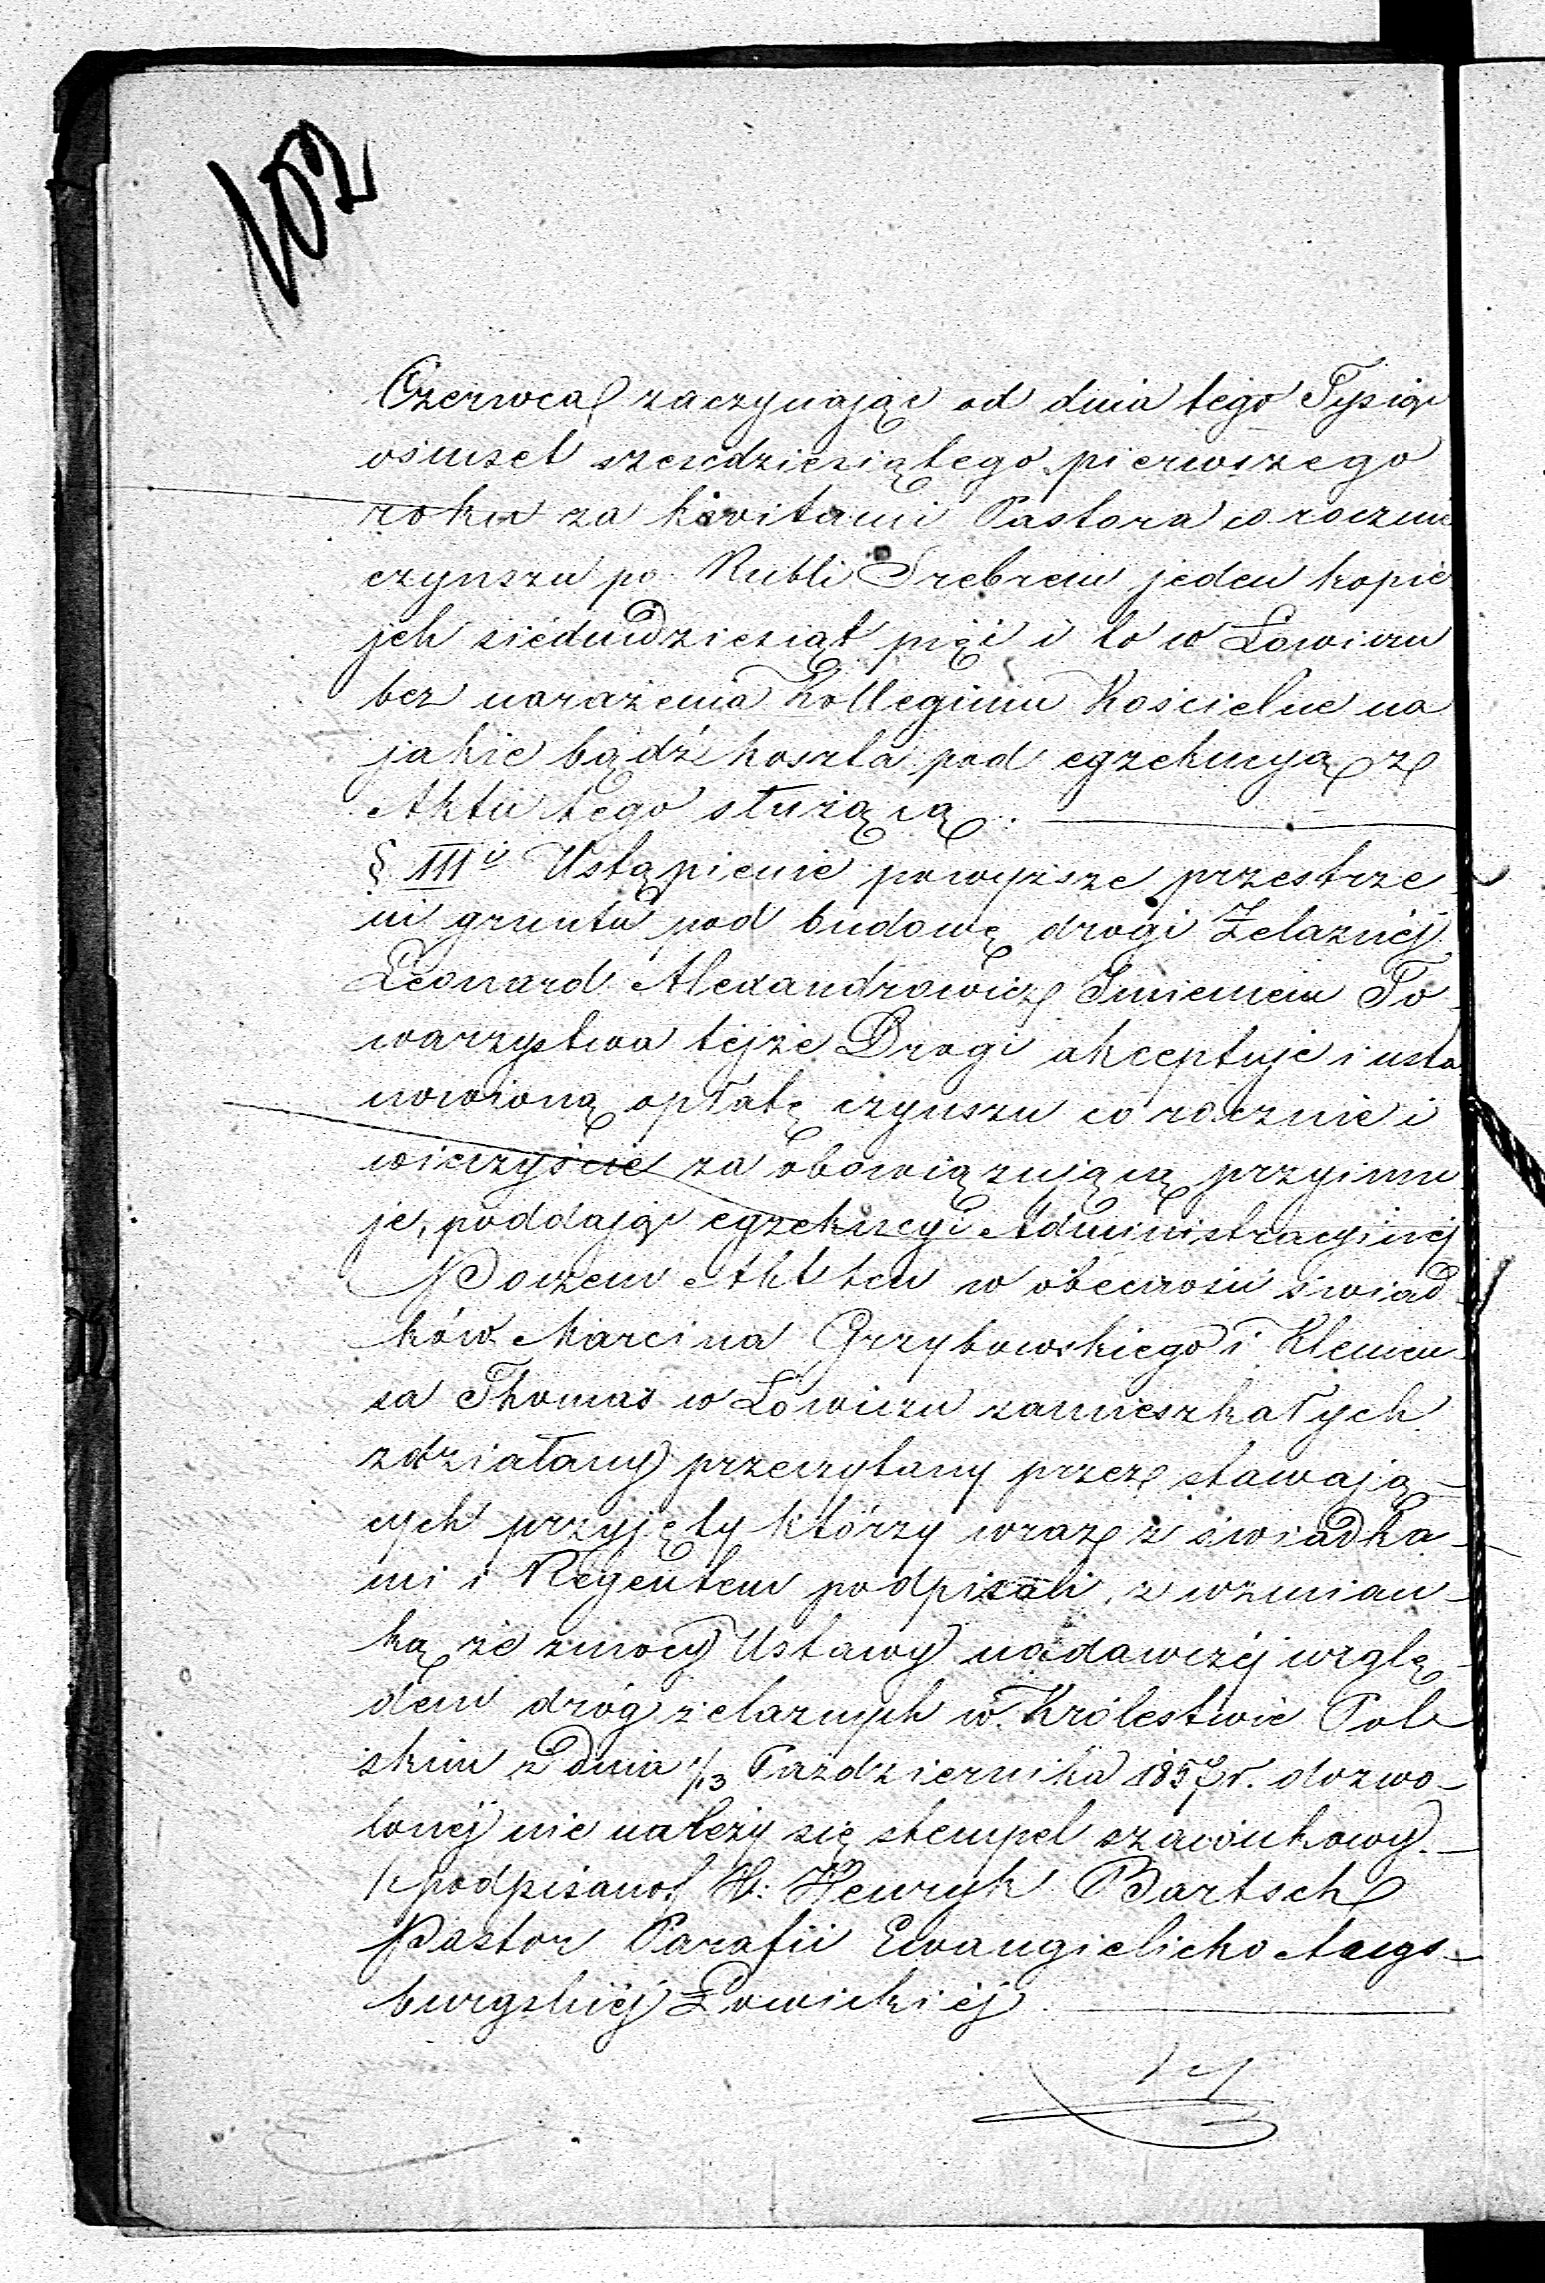 102
Czerwca zaczynając od dnia tego Tysiąc
ośmset szesćdziesiątego pierwszego
roku za kwitami Pastora co rocznie
czynszu po Rubli Srebrem jeden kopie
jek siedmdziesiąt pięć i to w Łowiczu
bez narażenia Kollegium Kościelne na
jakie bądź koszta pod egzekucyą z
Aktu tego służącą.
§ III i Ustąpienie powyższe przestrze
ni gruntu pod budowę drogi Żelaznéj
Leonard Alexandrowicz Imieniem To
warzystwa tejże Drogi akceptuje i usta
nowioną opłatę czynszu co rocznie i
wieczyście za obowiązującą przyimu
je, poddając egzekucyi Administracyinéj
Poczem Akt ten w obecności świad
ków Marcina Grzybowskiego i Klemen
sa Thomas w Łowiczu zamieszkałych
zdziałany przeczytany przez stawają-
cych przyjęty którzy wraz z świadka-
mi i Regentem podpisali, z wzmian-
ką że z mocy Ustawy nadawczéj wzglę-
dem dróg żelaznych w Królestwie Pol
skim z dnia 1/13 Października 1857 r. dozwo-
lonéj nie należy się stempel szacunkowy.-
/: podpisano:/ H: Henryk Bartsch
Pastor Parafii Ewangielicko Augs-
burgskiéj Łowickiéj